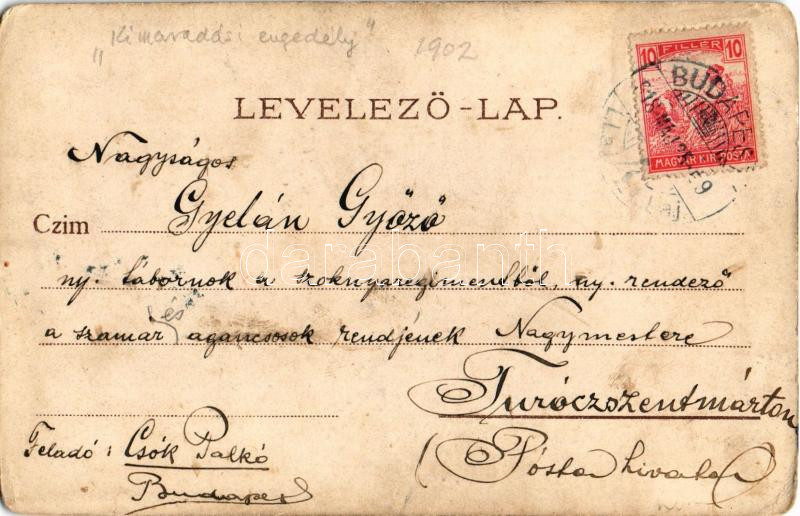 „Kimaradási engedély" 1902
10 FILLER 10
MAGYAR KIR. POSTA
BUDAPEST
LEVELEZŐ-LAP.
Nagyságos
Czim Gyelán Győző
ny. tábornok a szoknyaregimentből, ny. rendező
a szamár és agancsosok rendjének Nagymestere
Turóczszentmárton
(Pósta hivatal)
Feladó: Csók Palkó
Budapest
darabanth